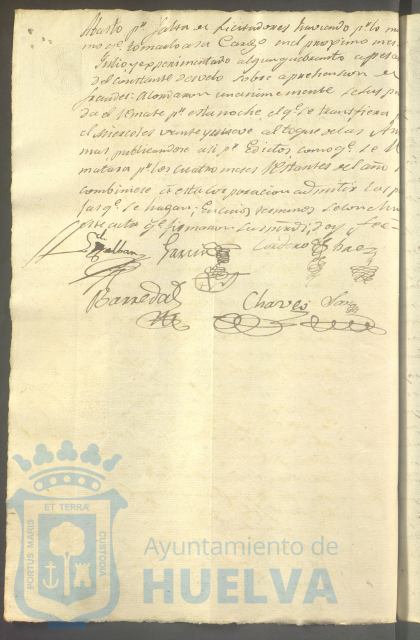 Abasto pr. falta de Licitadores haviendo pr. lo m
mo qe. tomarlo a su Cargo en el proximo mes
Julio, y experimentado algun quebranto apesa
del constante desvelo sobre aprehension de
fraudes: Acordaron unanimemente se
da el remate pa. esta noche, el qe. se transfiera p
el Miercoles veinte y nueve al toque de las An
mas, publicandose asi pr. Edictos como qe. se
matara pr. los quatro meses restantes del año
combiniese a esta corporacion admitir las p
las qe. se hagan; En cuios terminos se concluy
este acto qe. firmaron sus mrds; doy fee=
Garcia
Cordero
Barreda
Chaves
ET TERRÆ
PORTUS MARIS
CUSTODIA
Ayuntamiento de
HUELVA